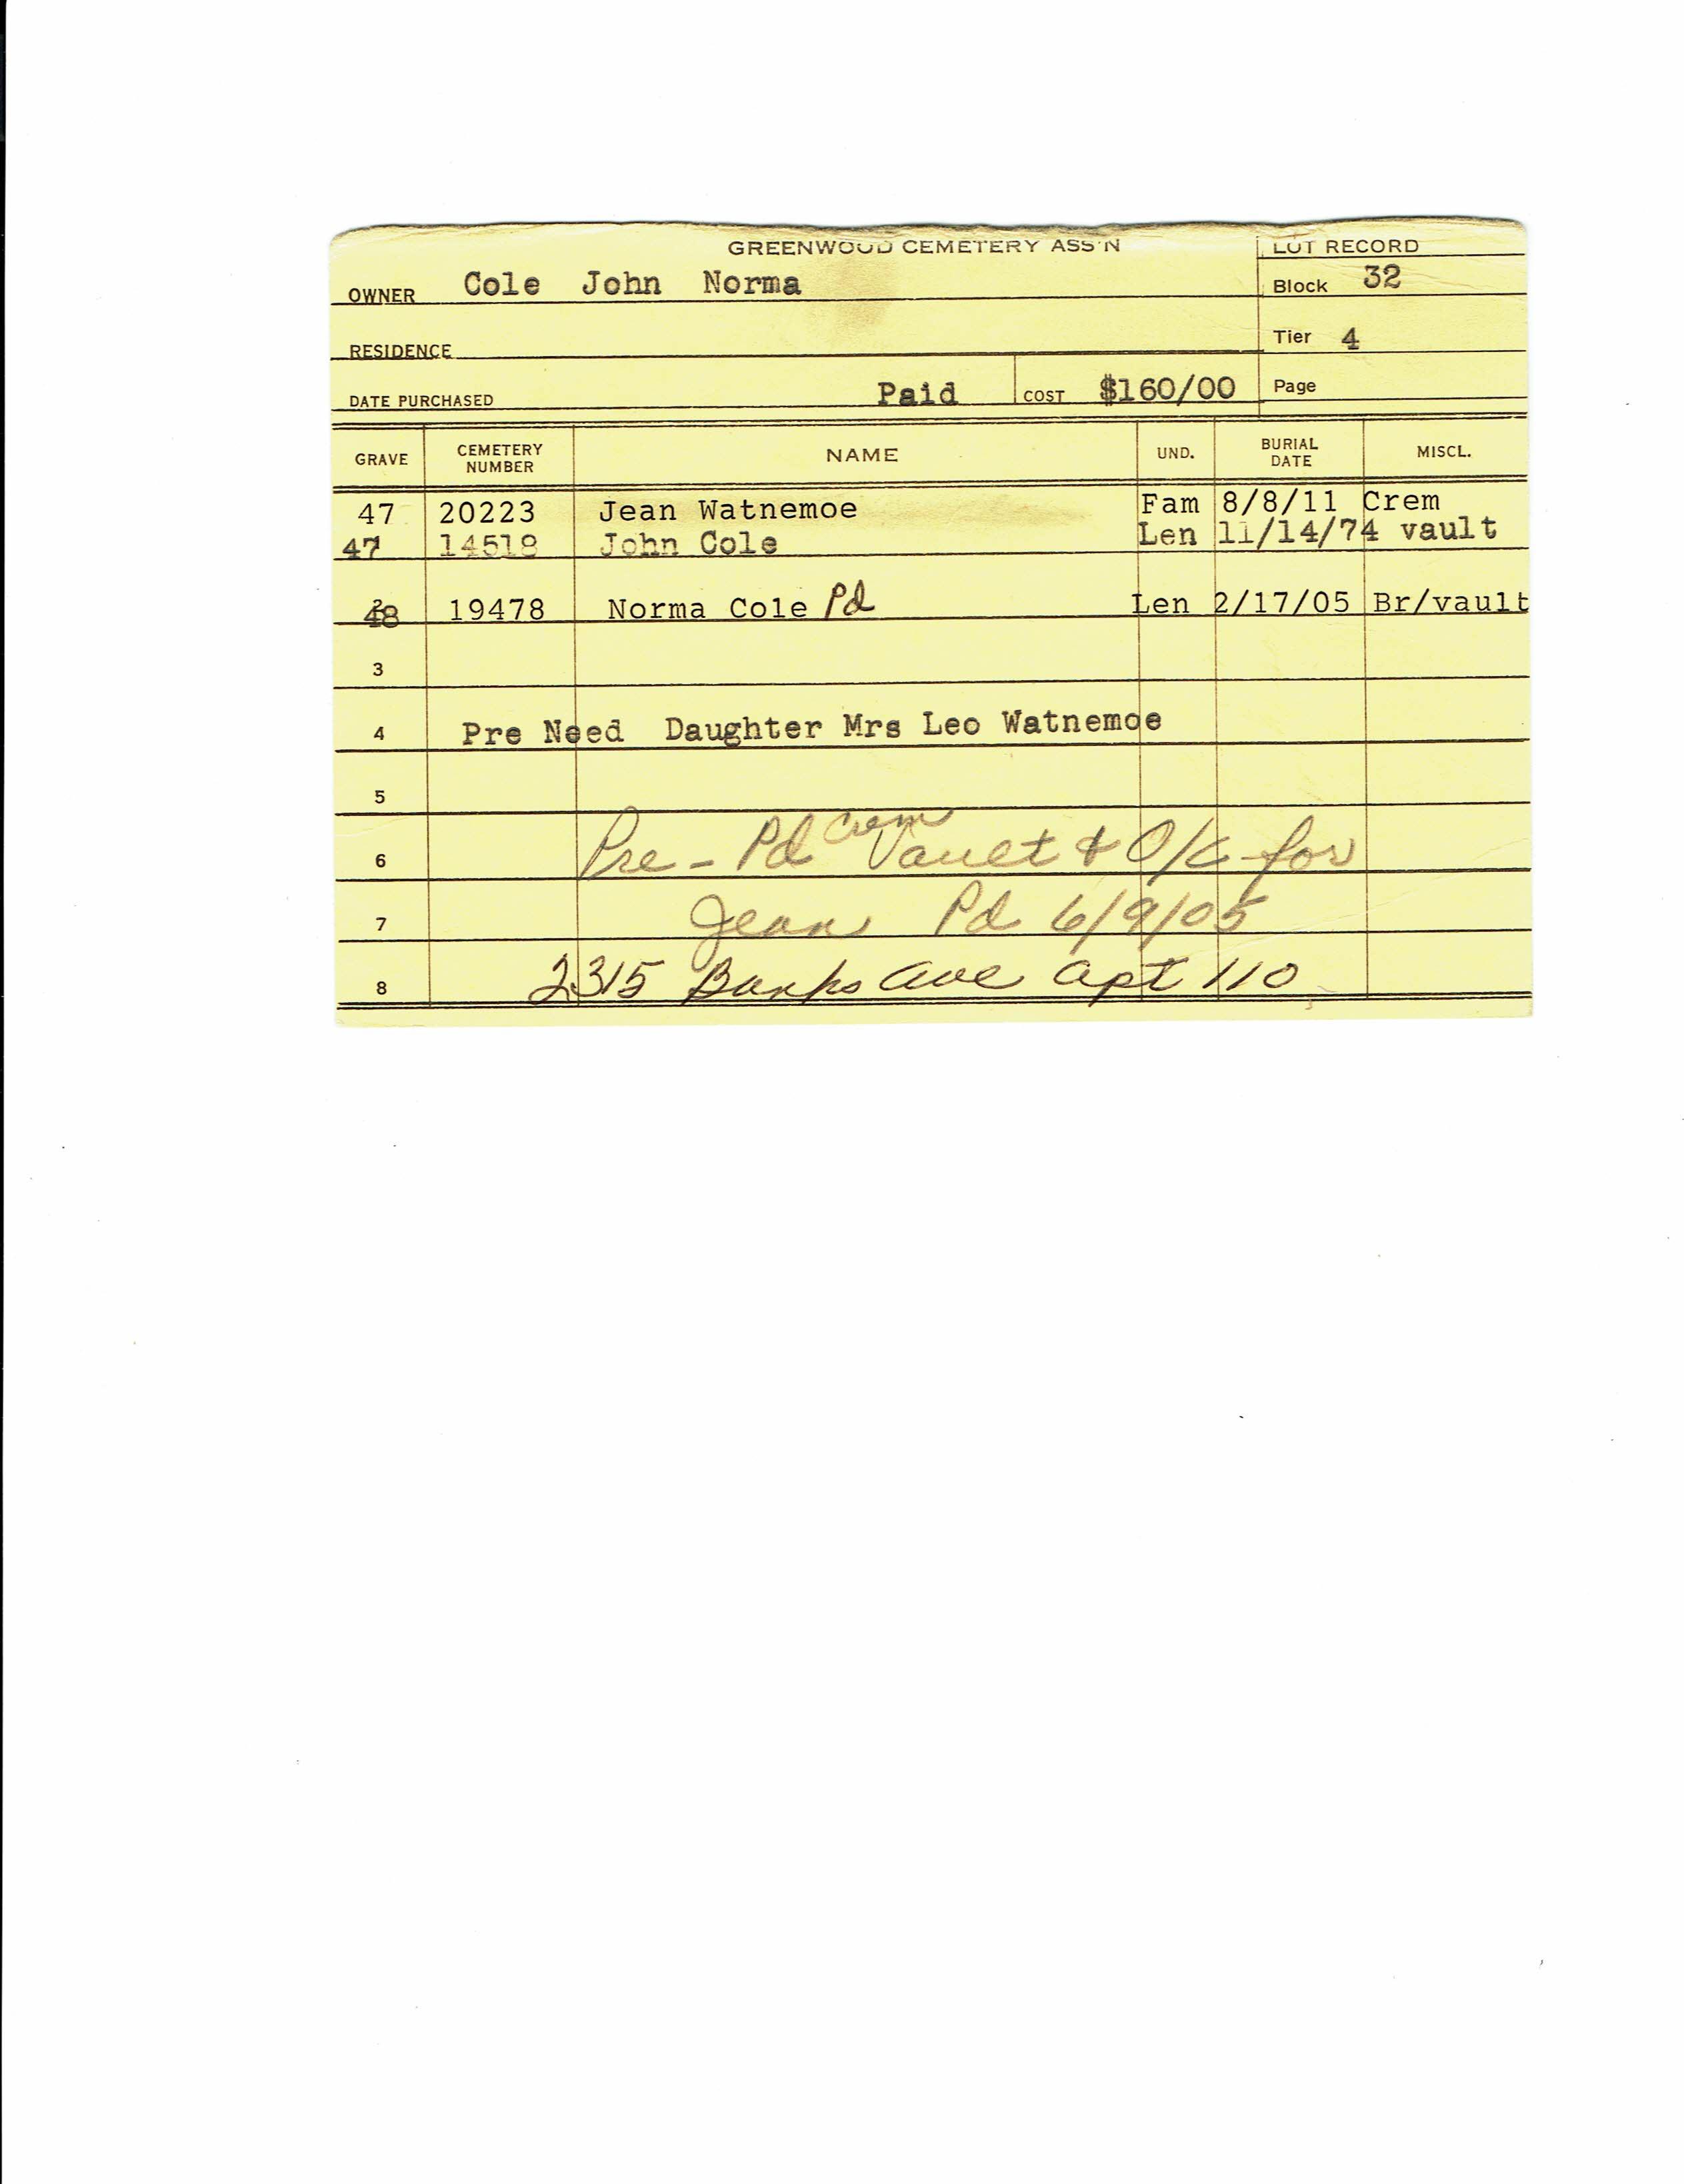 GREENWOOD CEMETERY ASS'N LOT RECORD
OWNER Cole John Norma Block 32
RESIDENCE Tier 4
DATE PURCHASED Paid COST $160/00 Page
GRAVE CEMETERY NUMBER NAME UND. BURIAL DATE MISCL.
47 20223 Jean Watnemoe Fam 8/8/11 Crem
47 14518 John Cole Len 11/14/74 vault
48 19478 Norma Cole Pd Len 2/17/05 Br/vault
3
4 Pre Need Daughter Mrs Leo Watnemoe
5
6 Pre-Pd Crem Vault & O/C for
7 Jean Pd 6/9/05
8 2315 Banks Ave Apt 110